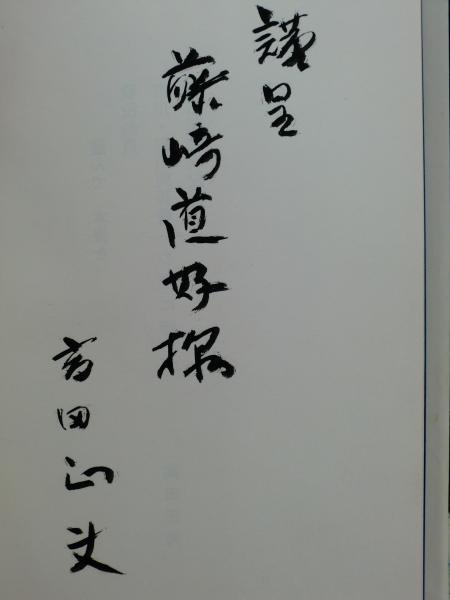 謹呈
藤崎道好様
高田正文